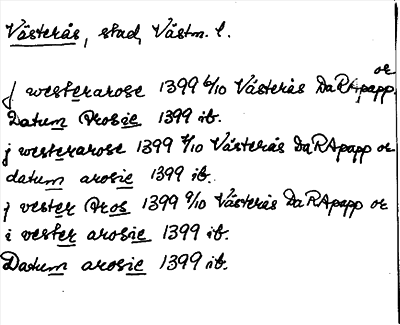 Västerås, stad, Västm. l.
j westerarose 1399 6/10 Västerås DaRApapp or
Datum Arosie 1399 ib.
j westerarose 1399 7/10 Västerås DaRApapp or
datum arosie 1399 ib.
j vester Aros 1399 9/10 Västerås DaRApapp or
i vester arosie 1399 ib.
Datum arosie 1399 ib.